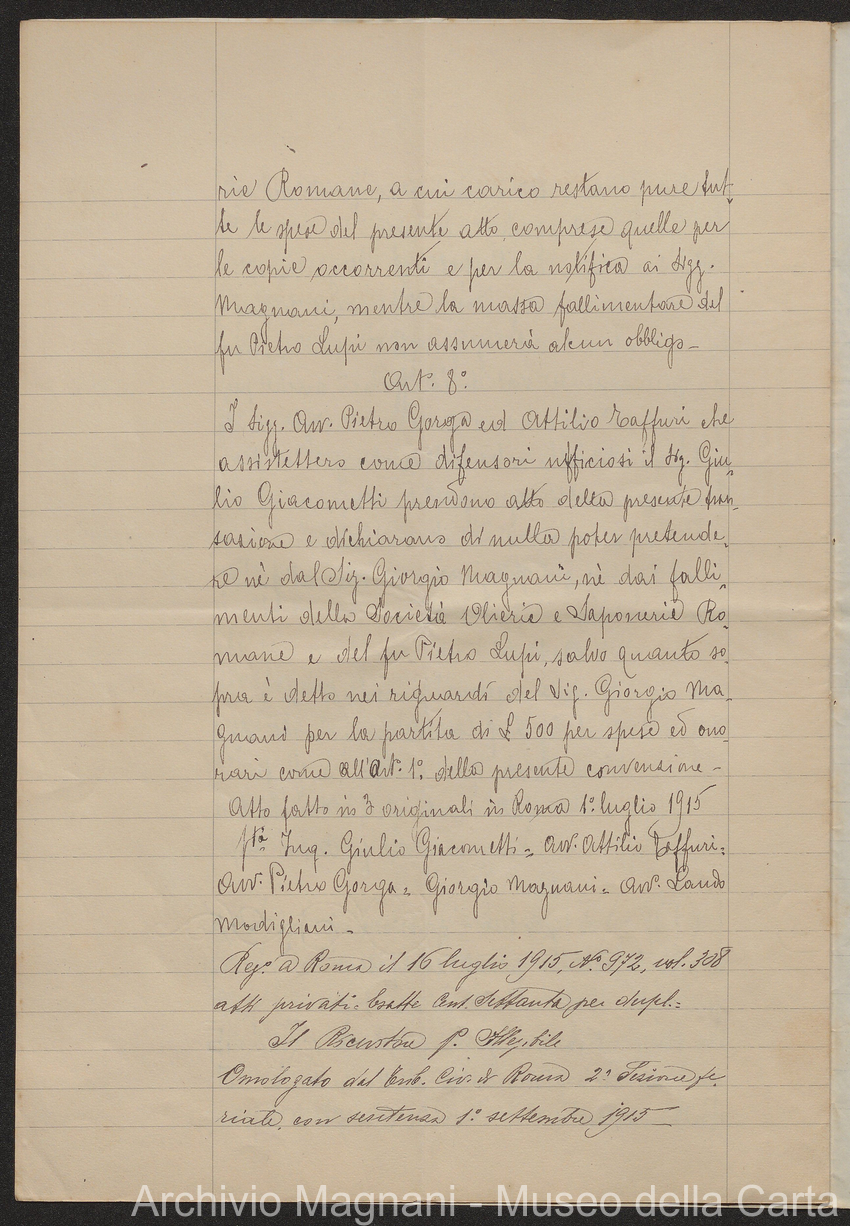 rie Romane, a cui carico restano pure tut-
te le spese del presente atto, comprese quelle per
le copie occorrenti e per la notifica ai Sigg.
Magnani, mentre la massa fallimentare del
fu Pietro Lupi non assumerà alcun obbligo -
Art. 8º
I Sigg. Avv. Pietro Gorga ed Attilio Taffuri che
assistettero come difensori ufficiosi il Sig. Giu
lio Giacometti prendono atto della presente tran
sazione e dichiarano di nulla poter pretende
re nè dal Sig. Giorgio Magnani, nè dai falli
menti della Società Olierie e Saponerie Ro
mane e del fu Pietro Lupi, salvo quanto so
pra è detto nei riguardi del Sig. Giorgio Ma
gnani per la partita di £ 500 per spese ed ono
rari come all'art. 1º della presente convenzione -
Atto fatto in 3 originali in Roma 1º luglio 1915
fti Ing. Giulio Giacometti = Avv. Attilio Taffuri =
Avv. Pietro Gorga = Giorgio Magnani = Avv. Lando
Modigliani -
Rego a Roma il 16 luglio 1915, Nº 972, vol. 308
atti privati = Esatte Cent. Settanta per dupl. =
Il Ricevitore f. Illegibile
Omologato dal Trib. Civ. di Roma 2ª Sezione fe
riale, con sentenza 1º settembre 1915 -
Archivio Magnani - Museo della Carta